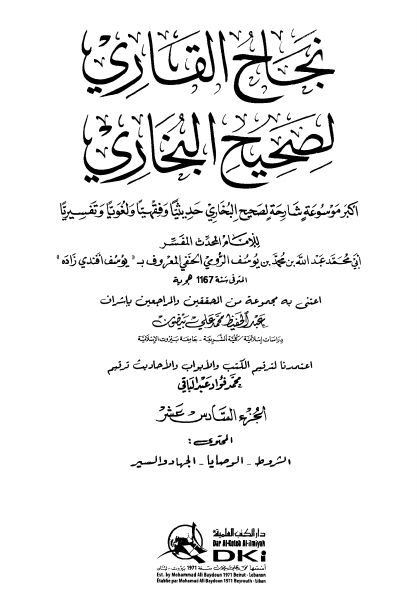 نجاح القاري
لصحيح البخاري
أكبر موسوعة شارحة لصحيح البخاري حديثيًّا وفقهيًّا ولغويًّا وتفسيريًّا
للإمام المحدث المفسر
أبي محمد عبد الله بن محمد بن يوسف الرومي الحنفي المعروف بـ "يوسف أفندي زاده"
المتوفى سنة 1167 هجرية
اعتنى به مجموعة من المحققين والمراجعين بإشراف
عبد الحفيظ محمد علي بيضون
دراسات إسلامية / كلية الشريعة - جامعة بيروت الإسلامية
اعتمدنا لترقيم الكتب والأبواب والأحاديث ترقيم
محمد فؤاد عبد الباقي
الجزء السادس عشر
المحتوى:
الشروط - الوصايا - الجهاد والسير
دار الكتب العلمية
Dar Al-Kotob Al-ilmiyah
DKi
أسسها محمد علي بيضون سنة 1971 بيروت - لبنان
Est. by Mohammad Ali Baydoun 1971 Beirut - Lebanon
Établie par Mohamad Ali Baydoun 1971 Beyrouth - Liban